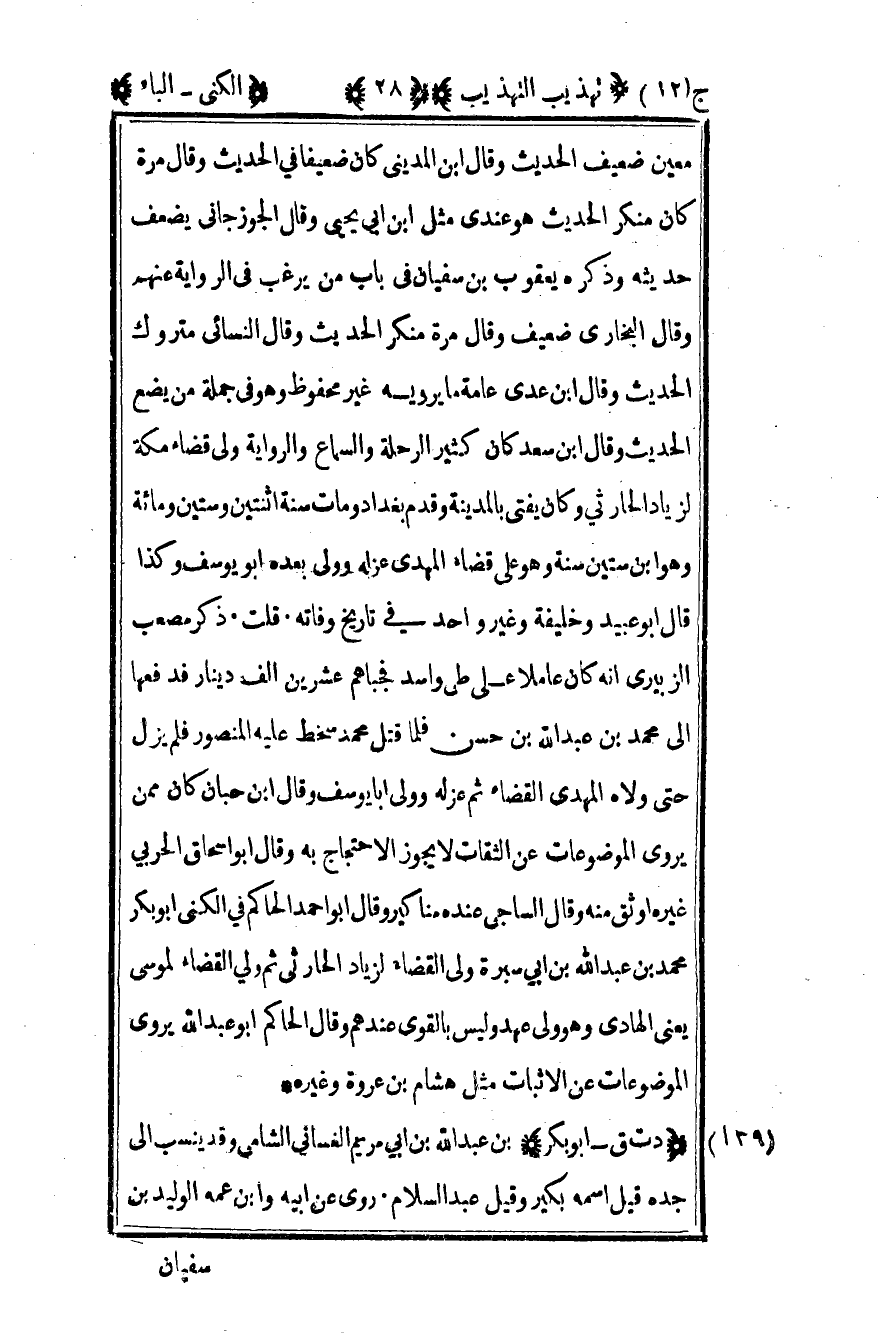 ج(١٢) ﴿ تهذيب التهذيب ﴾ ﴿ ٢٨ ﴾ ﴿ الكنى - الباء ﴾
معين ضعيف الحديث وقال ابن المدينى كان ضعيفا في الحديث وقال مرة
كان منكر الحديث هو عندى مثل ابن ابي يحيى وقال الجوزجانى يضعف
حديثه وذكره يعقوب بن سفيان فى باب من يرغب فى الرواية عنهم
وقال البخارى ضعيف وقال مرة منكر الحديث وقال النسائى متروك
الحديث وقال ابن عدى عامة ما يرويه غير محفوظ وهو فى جملة من يضع
الحديث وقال ابن سعد كان كثير الرحلة والسماع والرواية ولى قضاء مكة
لزياد الحارثي وكان يفتى بالمدينة وقدم بغداد ومات سنة اثنتين وستين ومائة
وهو ابن ستين سنة وهو على قضاء المهدى عزله وولى بعده ابو يوسف وكذا
قال ابو عبيد وخليفة وغير واحد في تاريخ وفاته · قلت · ذكر مصعب
الزبيرى انه كان عاملا على طى واسد فجباهم عشرين الف دينار فدفعها
الى محمد بن عبدالله بن حسن فلما قتل محمد سخط عليه المنصور فلم يزل
حتى ولاه المهدى القضاء ثم عزله وولى ابا يوسف وقال ابن حبان كان ممن
يروى الموضوعات عن الثقات لا يجوز الاحتجاج به وقال ابو اسحاق الحربي
غيره اوثق منه وقال الساجى عنده مناكير وقال ابو احمد الحاكم في الكنى ابو بكر
محمد بن عبدالله بن ابي سبرة ولى القضاء لزياد الحارثى ثم ولي القضاء لموسى
يعنى الهادى وهو ولى عهد وليس بالقوى عندهم وقال الحاكم ابو عبدالله يروى
الموضوعات عن الاثبات مثل هشام بن عروة وغيره*
(١٣٩) ﴿ دت ق - ابو بكر ﴾ بن عبدالله بن ابي مريم الغسانى الشامى وقد ينسب الى
جده قيل اسمه بكير وقيل عبد السلام · روى عن ابيه وابن عمه الوليد بن
سفيان